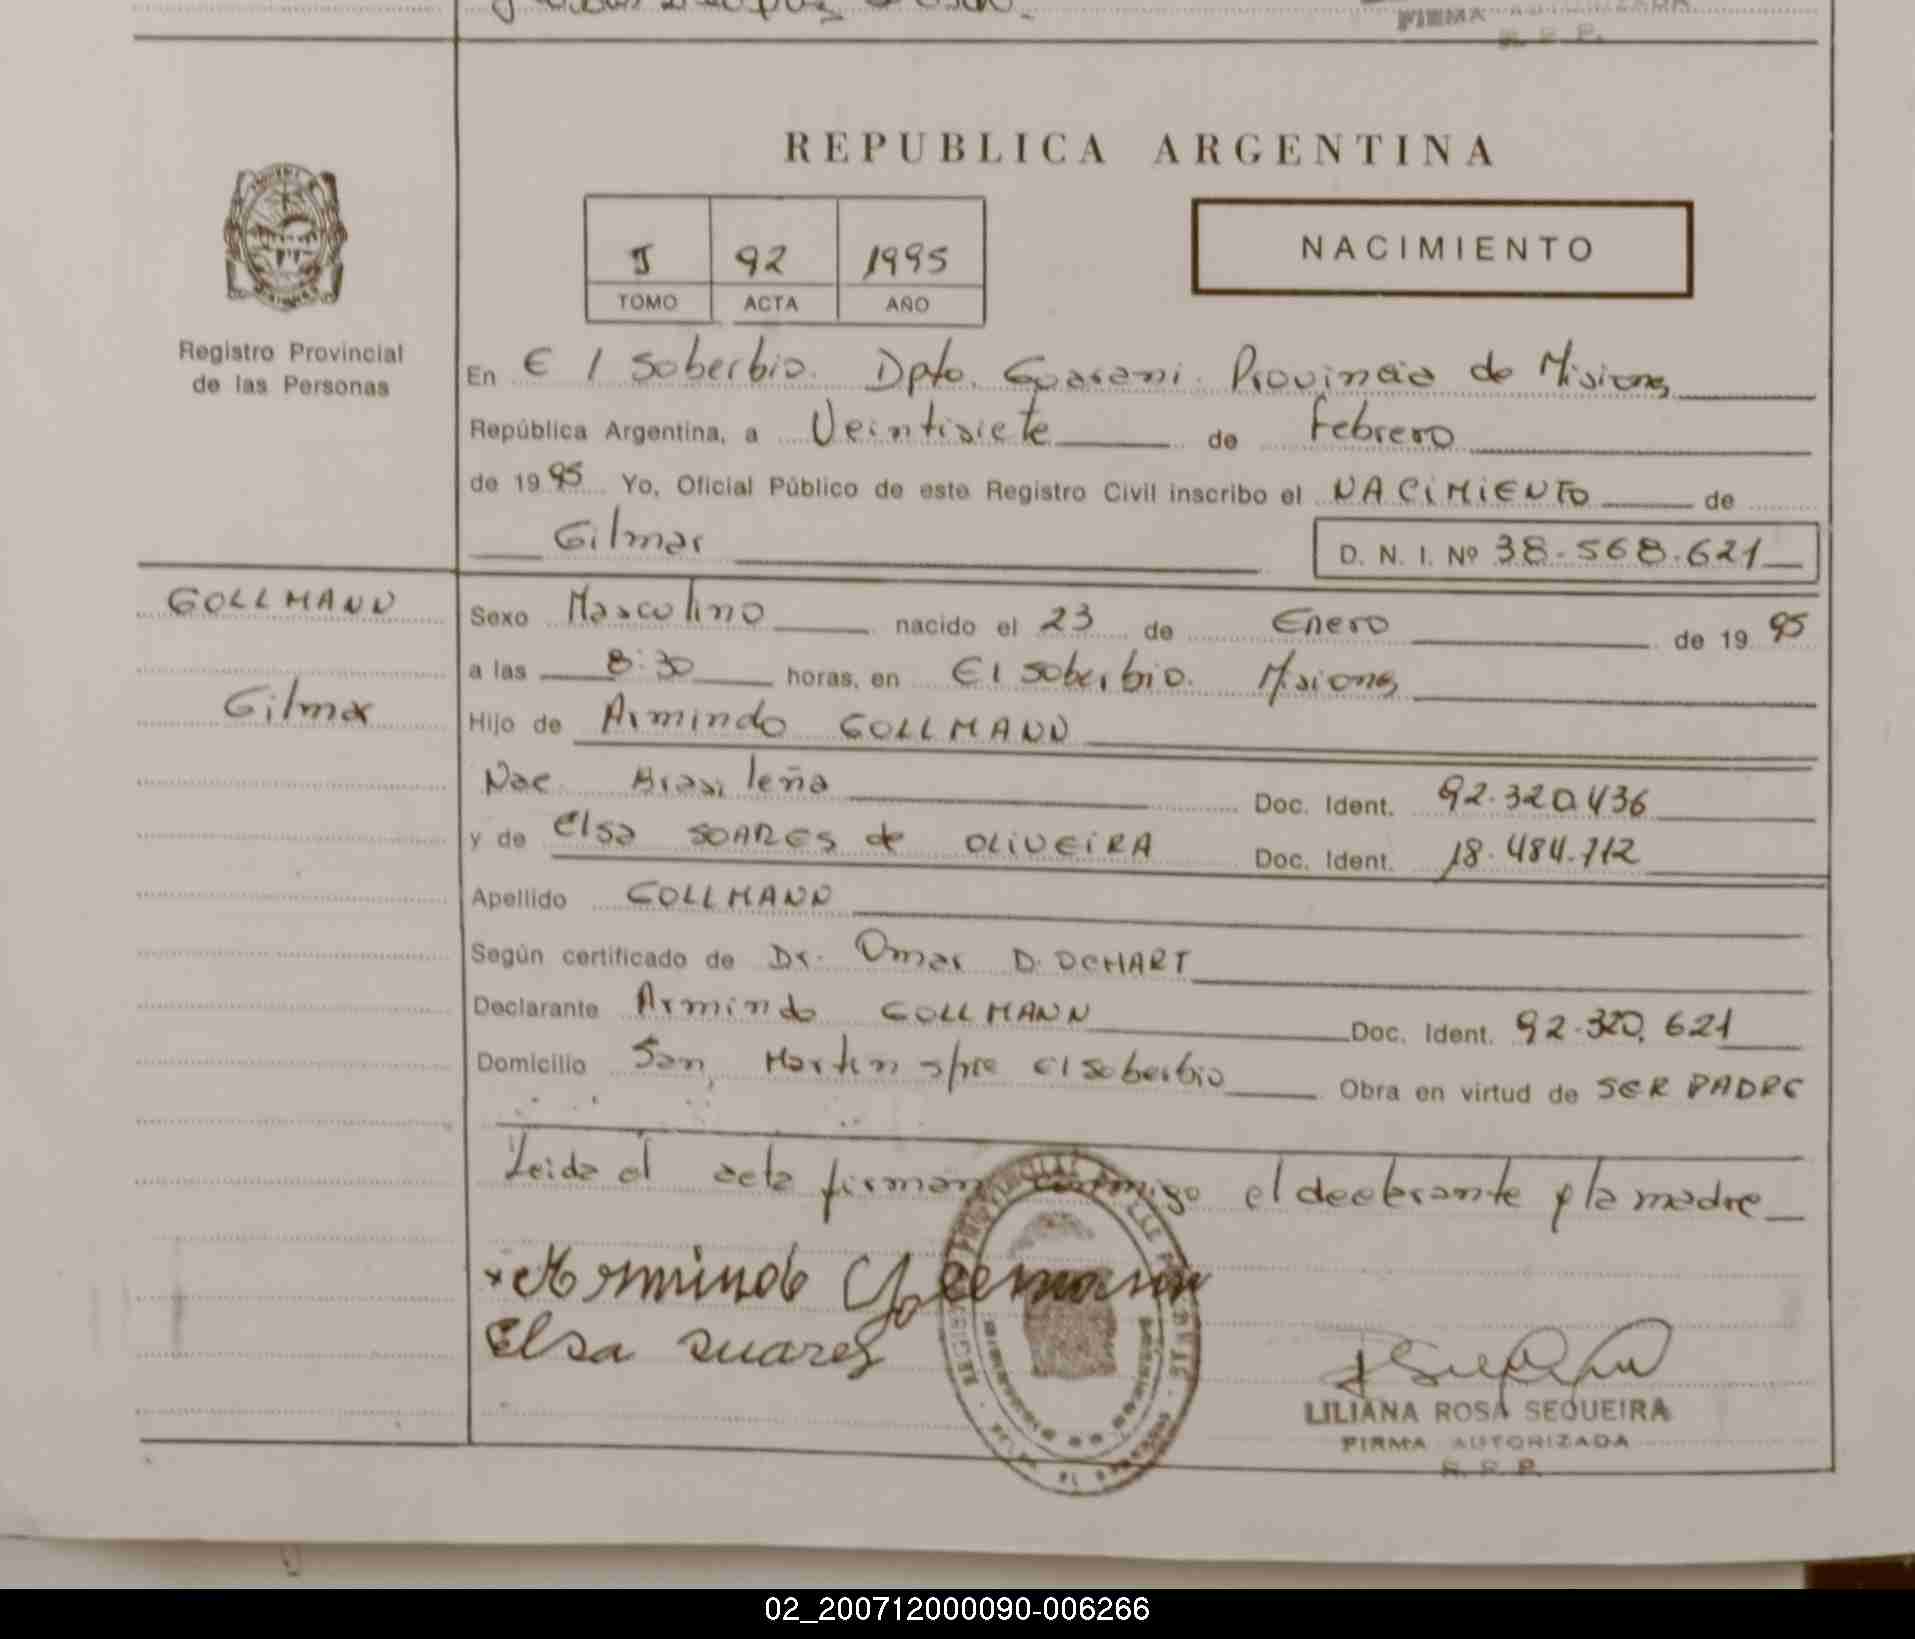 FIRMA AUTORIZADA
R. P. P.
REPUBLICA ARGENTINA
I 92 1995
TOMO ACTA AÑO
NACIMIENTO
Registro Provincial
de las Personas
En El Soberbio. Dpto. Guarani. Provincia de Misiones
República Argentina, a Veintisiete de Febrero
de 1995 Yo, Oficial Público de este Registro Civil inscribo el NACIMIENTO de
Gilmar
D. N. I. Nº 38.568.621
GOLLMANN
Gilmar
Sexo Masculino nacido el 23 de Enero de 1995
a las 8:30 horas, en El Soberbio. Misiones
Hijo de Armindo GOLLMANN
Nac. Brasileña Doc. Ident. 92.320.436
y de Elsa SOARES de OLIVEIRA Doc. Ident. 18.484.712
Apellido GOLLMANN
Según certificado de Dr. Omar D. DCHART
Declarante Armindo GOLLMANN Doc. Ident. 92.320.621
Domicilio San Martin s/nre El Soberbio Obra en virtud de SER PADRE
Leida el acta firman conmigo el declarante y la madre
Armindo Gollmann
Elsa suarez
LILIANA ROSA SEQUEIRA
FIRMA AUTORIZADA
R. P. P.
02_200712000090-006266